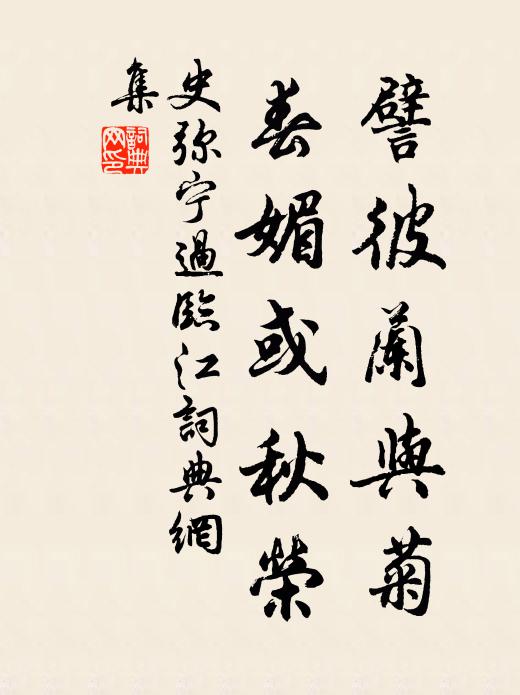 譬彼蘭與菊
春媚或秋榮
史弥宁過臨江詞典網
集
詞典
网印